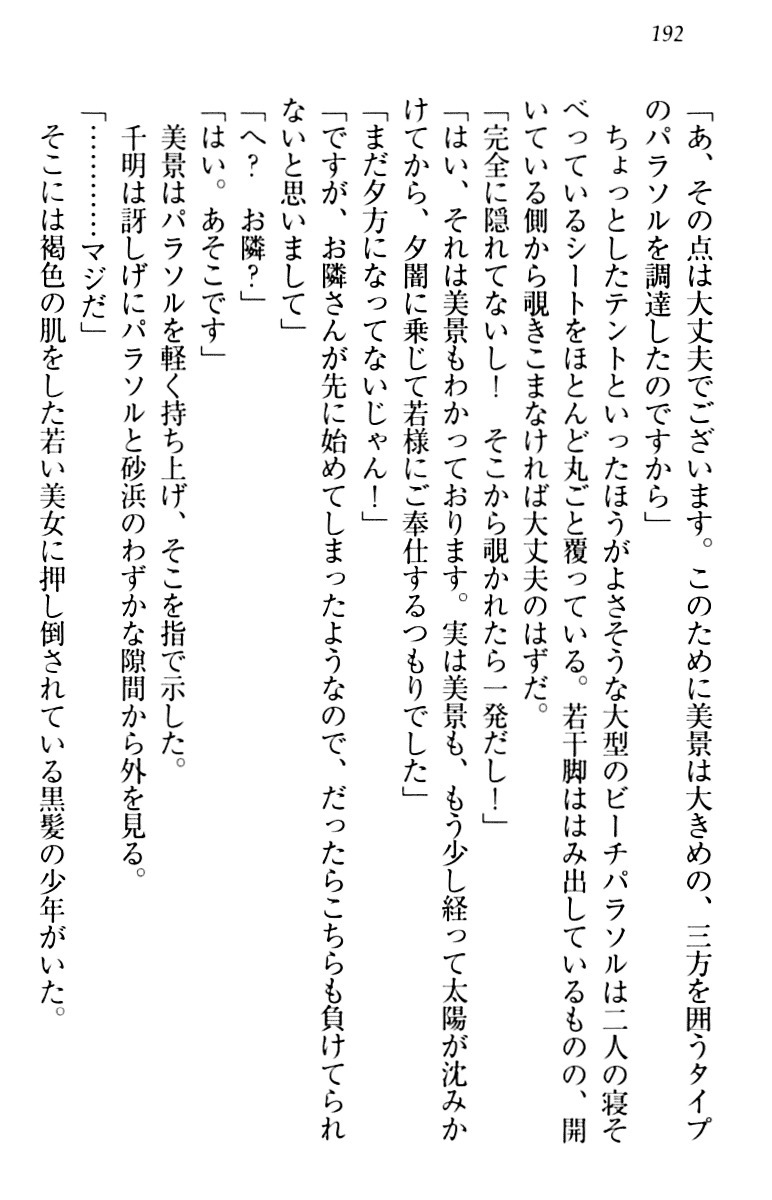 192
「あ、その点は大丈夫でございます。このために美景は大きめの、三方を囲うタイプ
のパラソルを調達したのですから」
　ちょっとしたテントといったほうがよさそうな大型のビーチパラソルは二人の寝そ
べっているシートをほとんど丸ごと覆っている。若干脚ははみ出しているものの、開
いている側から覗きこまなければ大丈夫のはずだ。
「完全に隠れてないし！　そこから覗かれたら一発だし！」
「はい、それは美景もわかっております。実は美景も、もう少し経って太陽が沈みか
けてから、夕闇に乗じて若様にご奉仕するつもりでした」
「まだ夕方になってないじゃん！」
「ですが、お隣さんが先に始めてしまったようなので、だったらこちらも負けてられ
ないと思いまして」
「へ？　お隣？」
「はい。あそこです」
　美景はパラソルを軽く持ち上げ、そこを指で示した。
　千明は訝しげにパラソルと砂浜のわずかな隙間から外を見る。
「…………マジだ」
　そこには褐色の肌をした若い美女に押し倒されている黒髪の少年がいた。